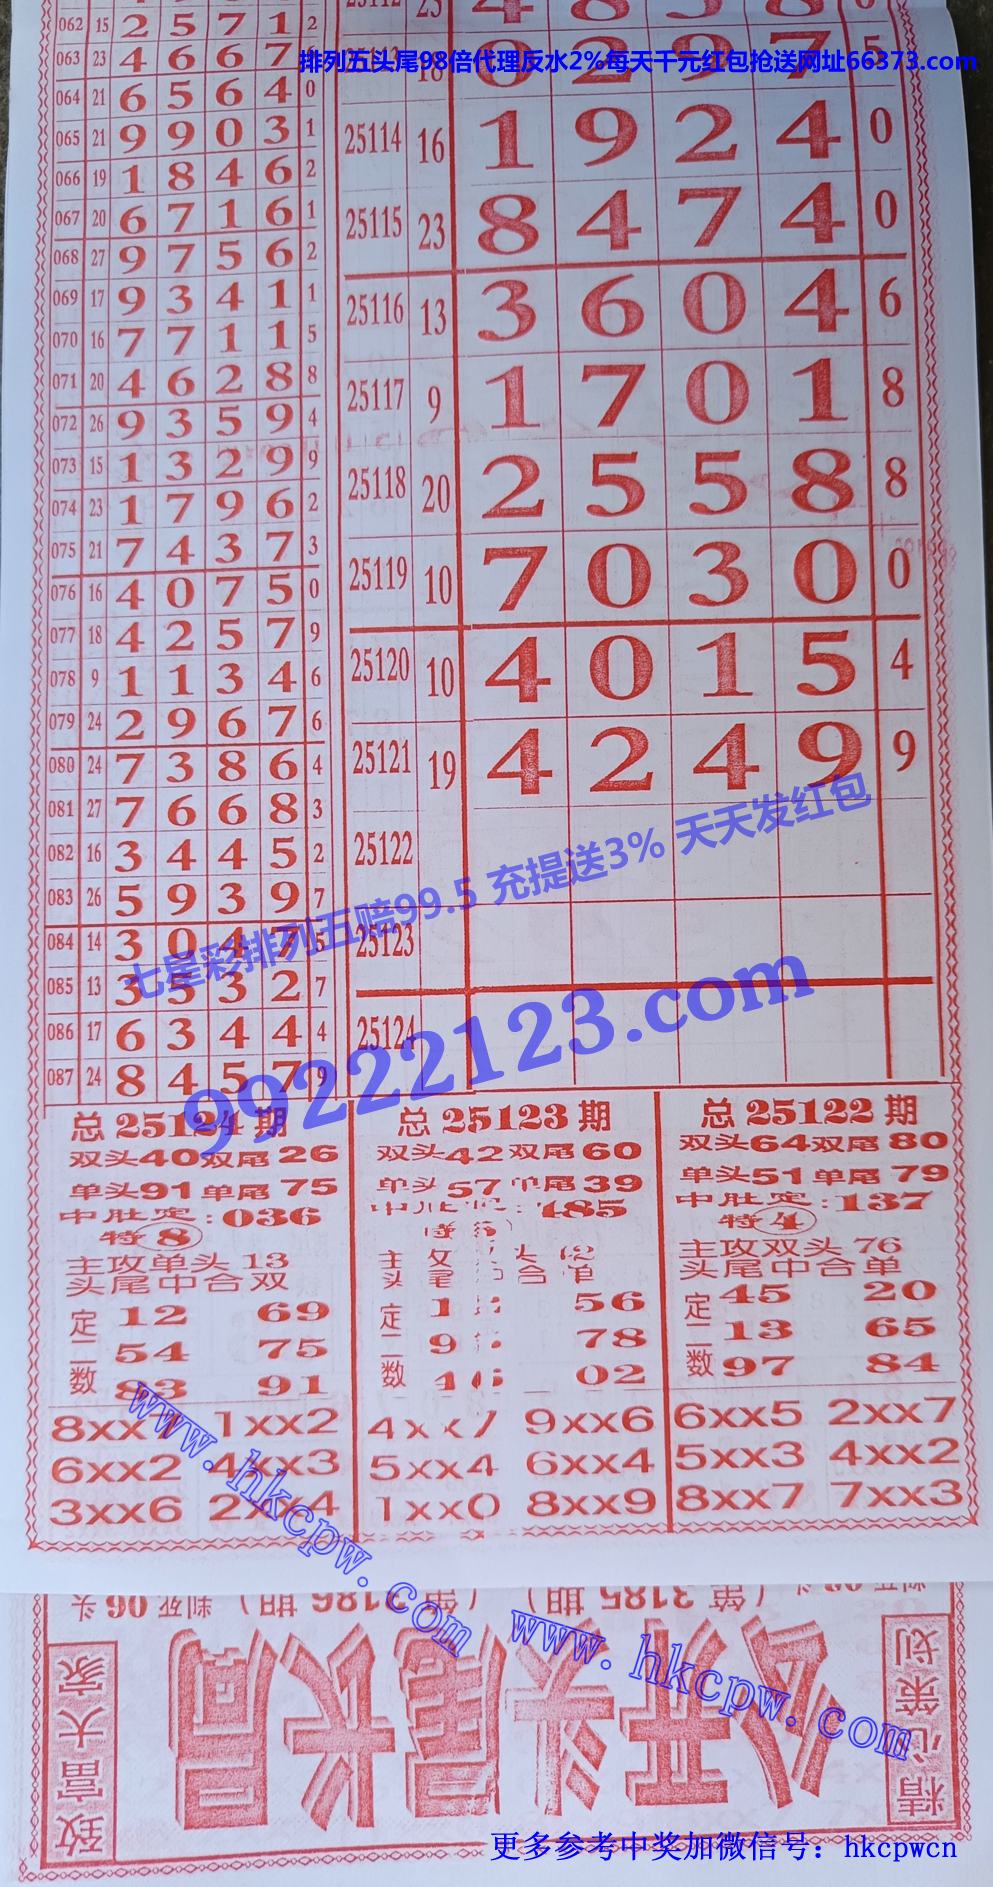 062 15 2 5 7 1 2
063 23 4 6 6 7
064 21 6 5 6 4 0
065 21 9 9 0 3 1
066 19 1 8 4 6 2
067 20 6 7 1 6 1
068 27 9 7 5 6 2
069 17 9 3 4 1 1
070 16 7 7 1 1 5
071 20 4 6 2 8 8
072 26 9 3 5 9 4
073 15 1 3 2 9 9
074 23 1 7 9 6 2
075 21 7 4 3 7 3
076 16 4 0 7 5 0
077 18 4 2 5 7 9
078 9 1 1 3 4 6
079 24 2 9 6 7 6
080 24 7 3 8 6 4
081 27 7 6 6 8 3
082 16 3 4 4 5 2
083 26 5 9 3 9 7
084 14 3 0 4 7 5
085 13 3 5 3 2 7
086 17 6 3 4 4 4
087 24 8 4 5 7 9
排列五头尾98倍代理反水2%每天千元红包抢送网址66373.com
25114 16 1 9 2 4 0
25115 23 8 4 7 4 0
25116 13 3 6 0 4 6
25117 9 1 7 0 1 8
25118 20 2 5 5 8 8
25119 10 7 0 3 0 0
25120 10 4 0 1 5 4
25121 19 4 2 4 9 9
25122
25123
25124
七星彩排列五赔99.5 充提送3% 天天发红包
99222123.com
总25124期
双头40双尾26
单头91单尾75
中肚定:036
特8
主攻单头13
头尾中合双
定二数
12 69
54 75
83 91
8xx1 1xx2
6xx2 4xx3
3xx6 2xx4
总25123期
双头42双尾60
单头57单尾39
485
56
78
02
4xx7 9xx6
5xx4 6xx4
1xx0 8xx9
总25122期
双头64双尾80
单头51单尾79
中肚定:137
特4
主攻双头76
头尾中合单
定二数
45 20
13 65
97 84
6xx5 2xx7
5xx3 4xx2
8xx7 7xx3
www.hkcpw.com
www.hkcpw.com
(第3185期)
(第3186期)
精心策划
公开头尾长局
致富大家
更多参考中奖加微信号：hkcpwcn